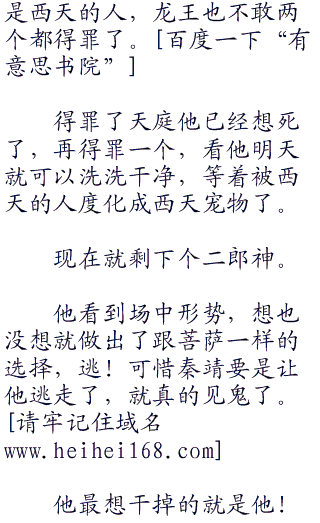 是西天的人，龙王也不敢两
个都得罪了。[百度一下“有
意思书院”]
得罪了天庭他已经想死
了，再得罪一个，看他明天
就可以洗洗干净，等着被西
天的人度化成西天宠物了。
现在就剩下个二郎神。
他看到场中形势，想也
没想就做出了跟菩萨一样的
选择，逃！可惜秦靖要是让
他逃走了，就真的见鬼了。
[请牢记住域名
www.heihei168.com]
他最想干掉的就是他！